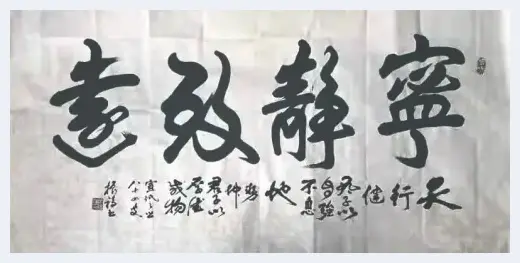 寧靜致遠
天行健
君子以
自強
不息
地勢坤
君子以
厚德
載物
八十四叟